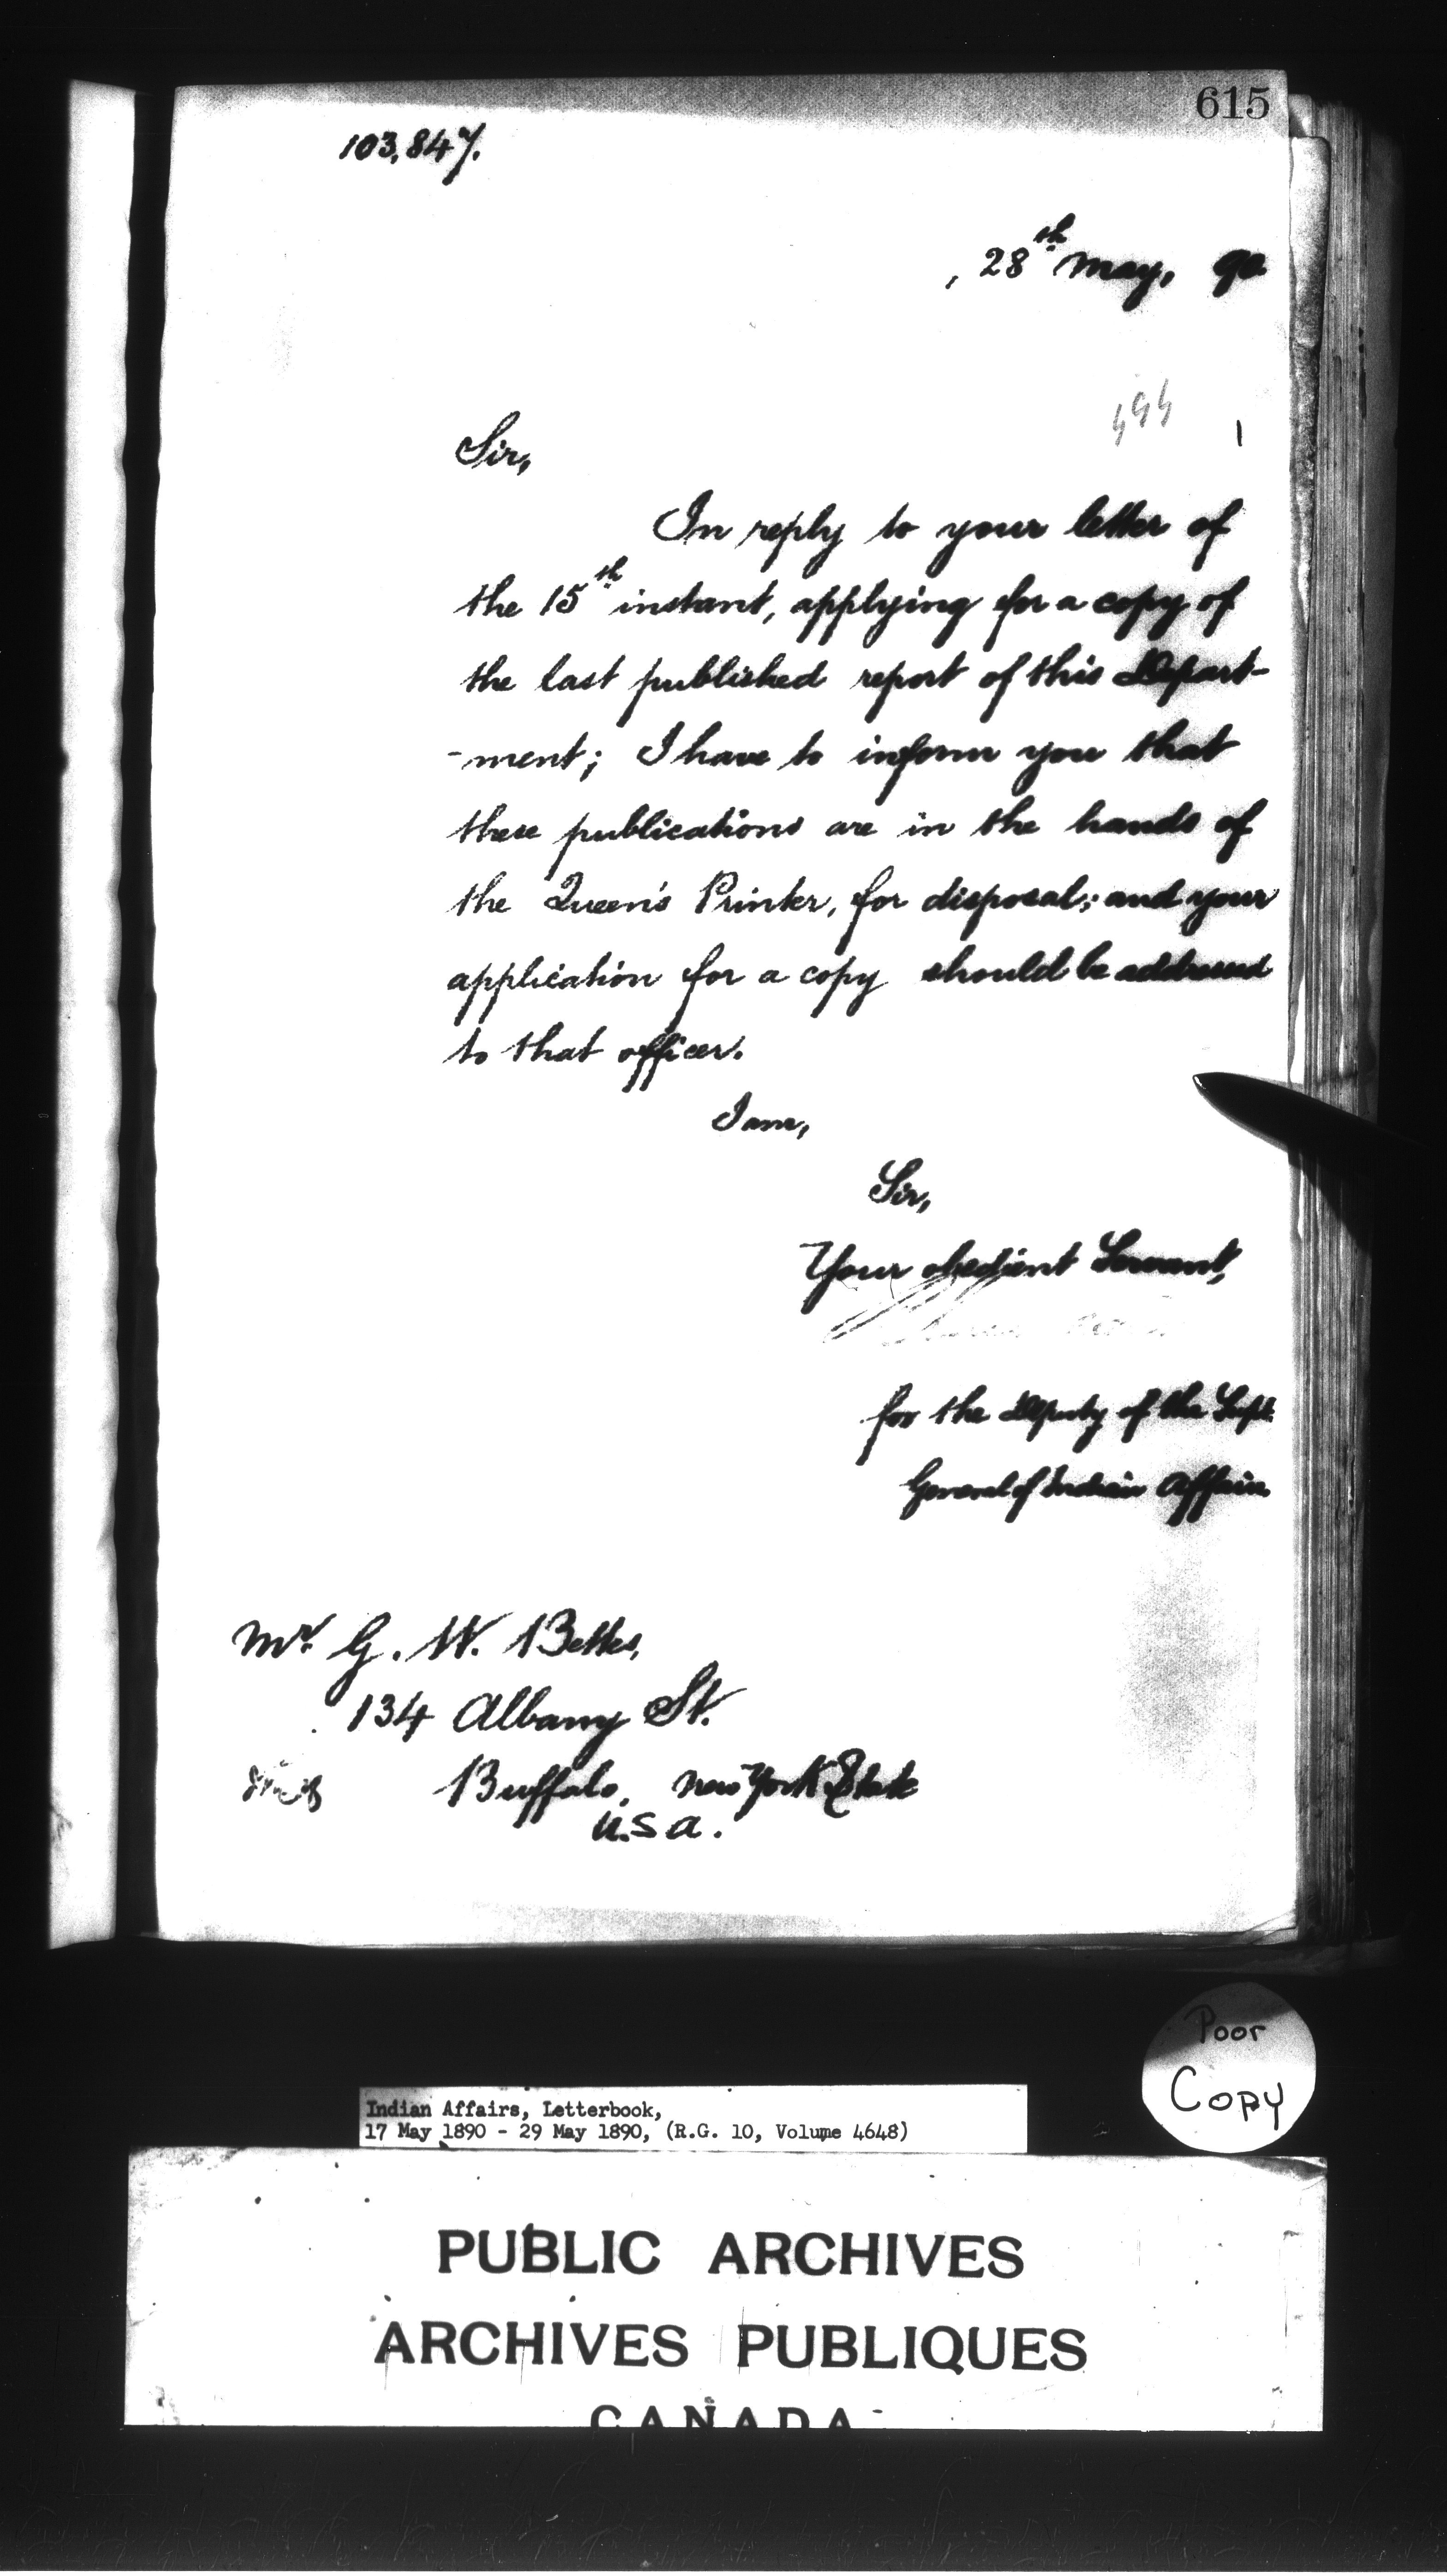 615
103,847.
, 28th May, 90
Sir,
In reply to your letter of
the 15th instant, applying for a copy of
the last published report of this Depart-
-ment; I have to inform you that
these publications are in the hands of
the Queen's Printer, for disposal; and your
application for a copy should be addressed
to that officer.
I am,
Sir,
Your obedient Servant,
for the Deputy of the Supt.
General of Indian Affairs
Mr. G. W. Bettes,
134 Albany St.
Buffalo, New York State
U.S.A.
Poor
Copy
Indian Affairs, Letterbook,
17 May 1890 - 29 May 1890, (R.G. 10, Volume 4648)
PUBLIC ARCHIVES
ARCHIVES PUBLIQUES
CANADA